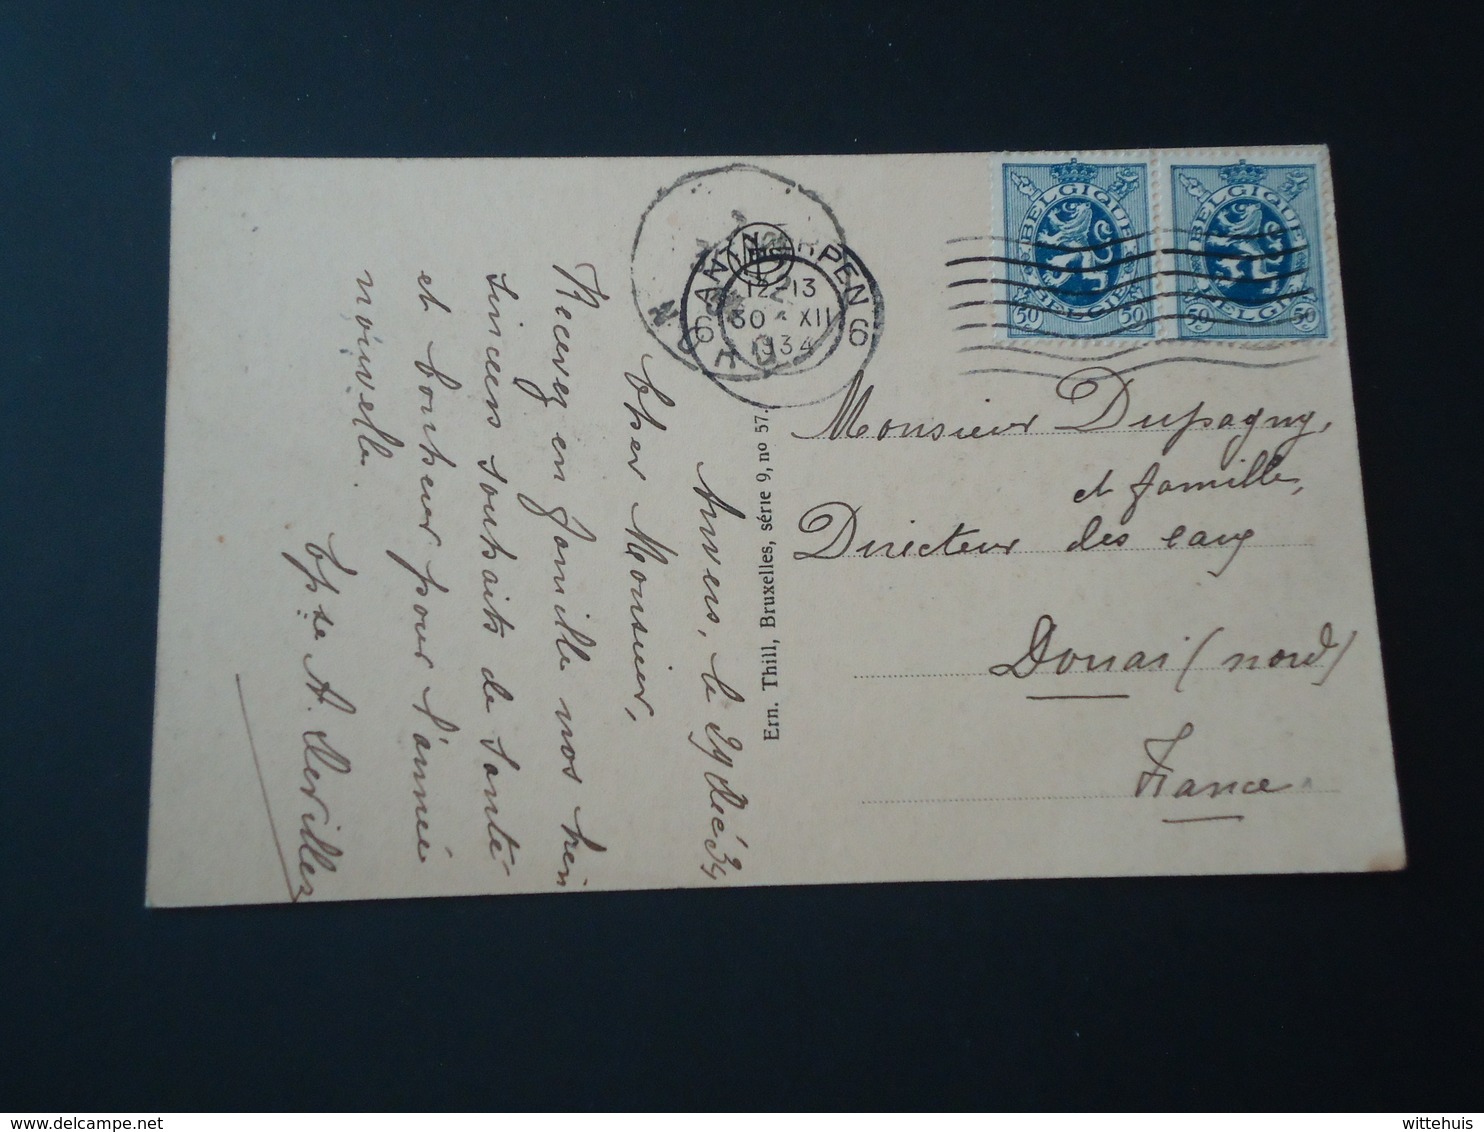 Anvers, le 29 déc 34
Cher Monsieur,
Recevez en famille nos bien
sincères souhaits de Santé
et bonheur pour l'année
nouvelle.
A. Dervillez
Ern. Thill, Bruxelles, série 9, no 57.
6 ANTWERPEN 6
12-13
30 XII
1934
NORD
BELGIQUE
BELGIE
50 50
BELGIQUE
BELGIE
50 50
Monsieur Dupagny,
et famille,
Directeur des eaux
Douai (nord)
France
wittehuis